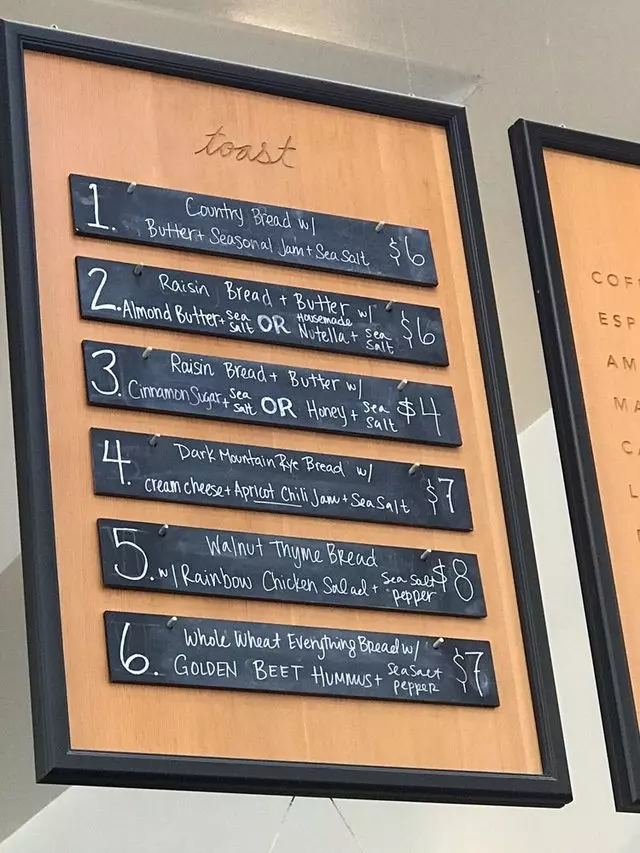 toast
1.
Country Bread w/
Butter + Seasonal Jam + Sea Salt
$6
2.
Raisin Bread + Butter w/
Almond Butter + sea salt OR Housemade Nutella + sea salt
$6
3.
Raisin Bread + Butter w/
Cinnamon Sugar + sea salt OR Honey + sea salt
$4
4.
Dark Mountain Rye Bread w/
cream cheese + Apricot Chili Jam + Sea Salt
$7
5.
Walnut Thyme Bread
w/ Rainbow Chicken Salad + Sea Salt pepper
$8
6.
Whole Wheat Everything Bread w/
GOLDEN BEET HUMMUS + Sea Salt pepper
$7
COF
ESP
AM
MA
C
L